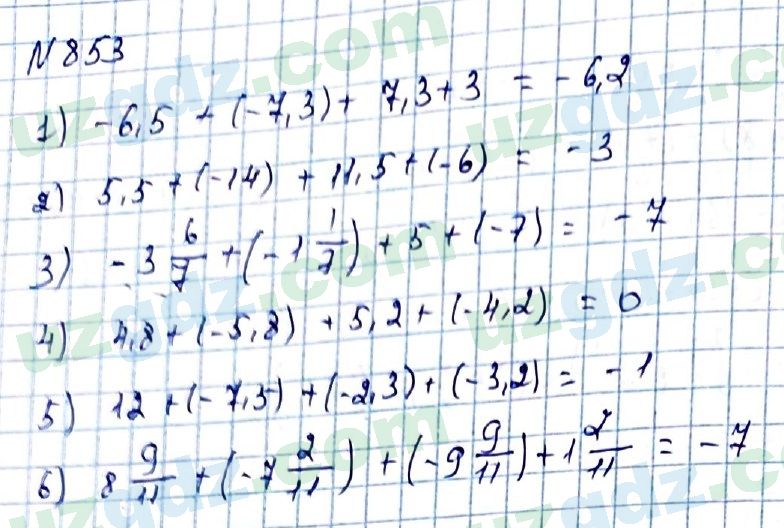 N 853
1) -6,5 + (-7,3) + 7,3 + 3 = -6,2
2) 5,5 + (-14) + 11,5 + (-6) = -3
3) -3 6/7 + (-1 1/7) + 5 + (-7) = -7
4) 4,8 + (-5,8) + 5,2 + (-4,2) = 0
5) 12 + (-7,5) + (-2,3) + (-3,2) = -1
6) 8 9/11 + (-7 2/11) + (-9 9/11) + 1 2/11 = -7
uzgdz.com